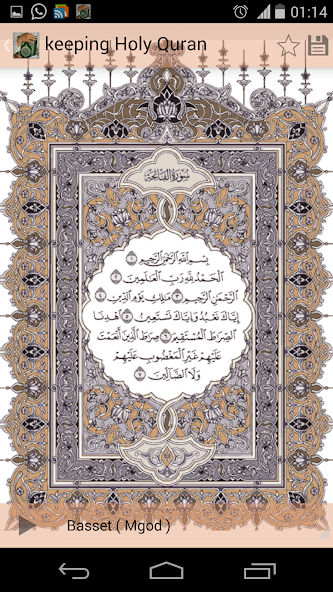 01:14
keeping Holy Quran
سُورَةُ الْفَاتِحَةِ
بِسْمِ اللَّهِ الرَّحْمَٰنِ الرَّحِيمِ ١
الْحَمْدُ لِلَّهِ رَبِّ الْعَالَمِينَ ٢
الرَّحْمَٰنِ الرَّحِيمِ ٣ مَالِكِ يَوْمِ الدِّينِ ٤
إِيَّاكَ نَعْبُدُ وَإِيَّاكَ نَسْتَعِينُ ٥ اهْدِنَا
الصِّرَاطَ الْمُسْتَقِيمَ ٦ صِرَاطَ الَّذِينَ أَنْعَمْتَ
عَلَيْهِمْ غَيْرِ الْمَغْضُوبِ عَلَيْهِمْ
وَلَا الضَّالِّينَ ٧
Basset ( Mgod )